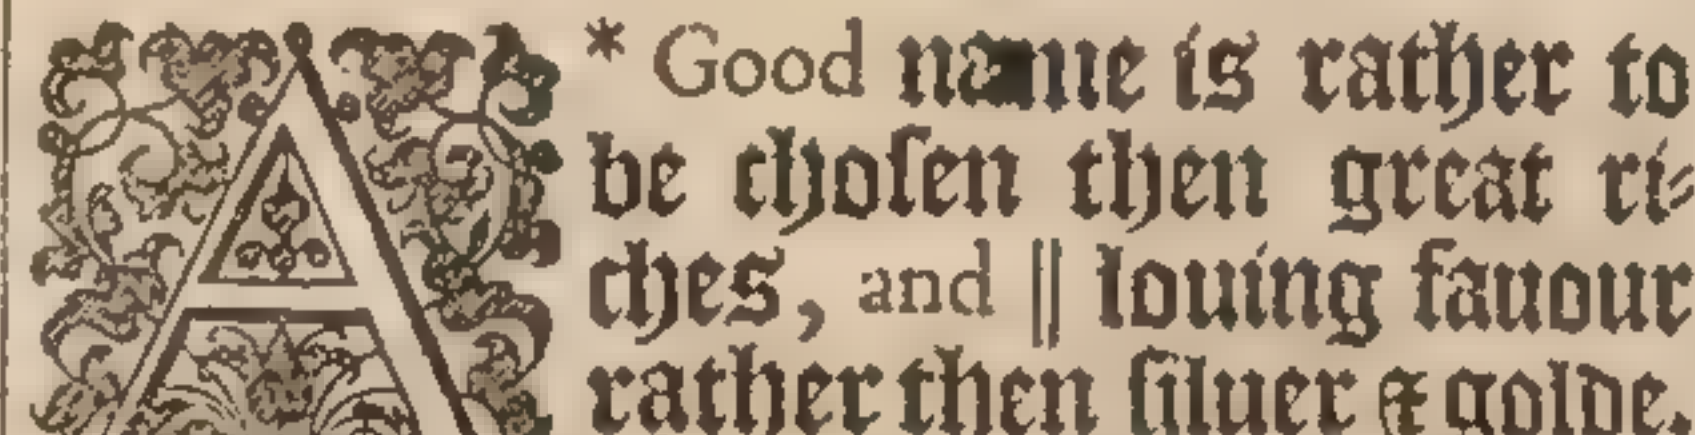 A * Good name is rather to
be choſen then great ri⸗
ches, and ‖ louing fauour
rather then ſiluer & golde.